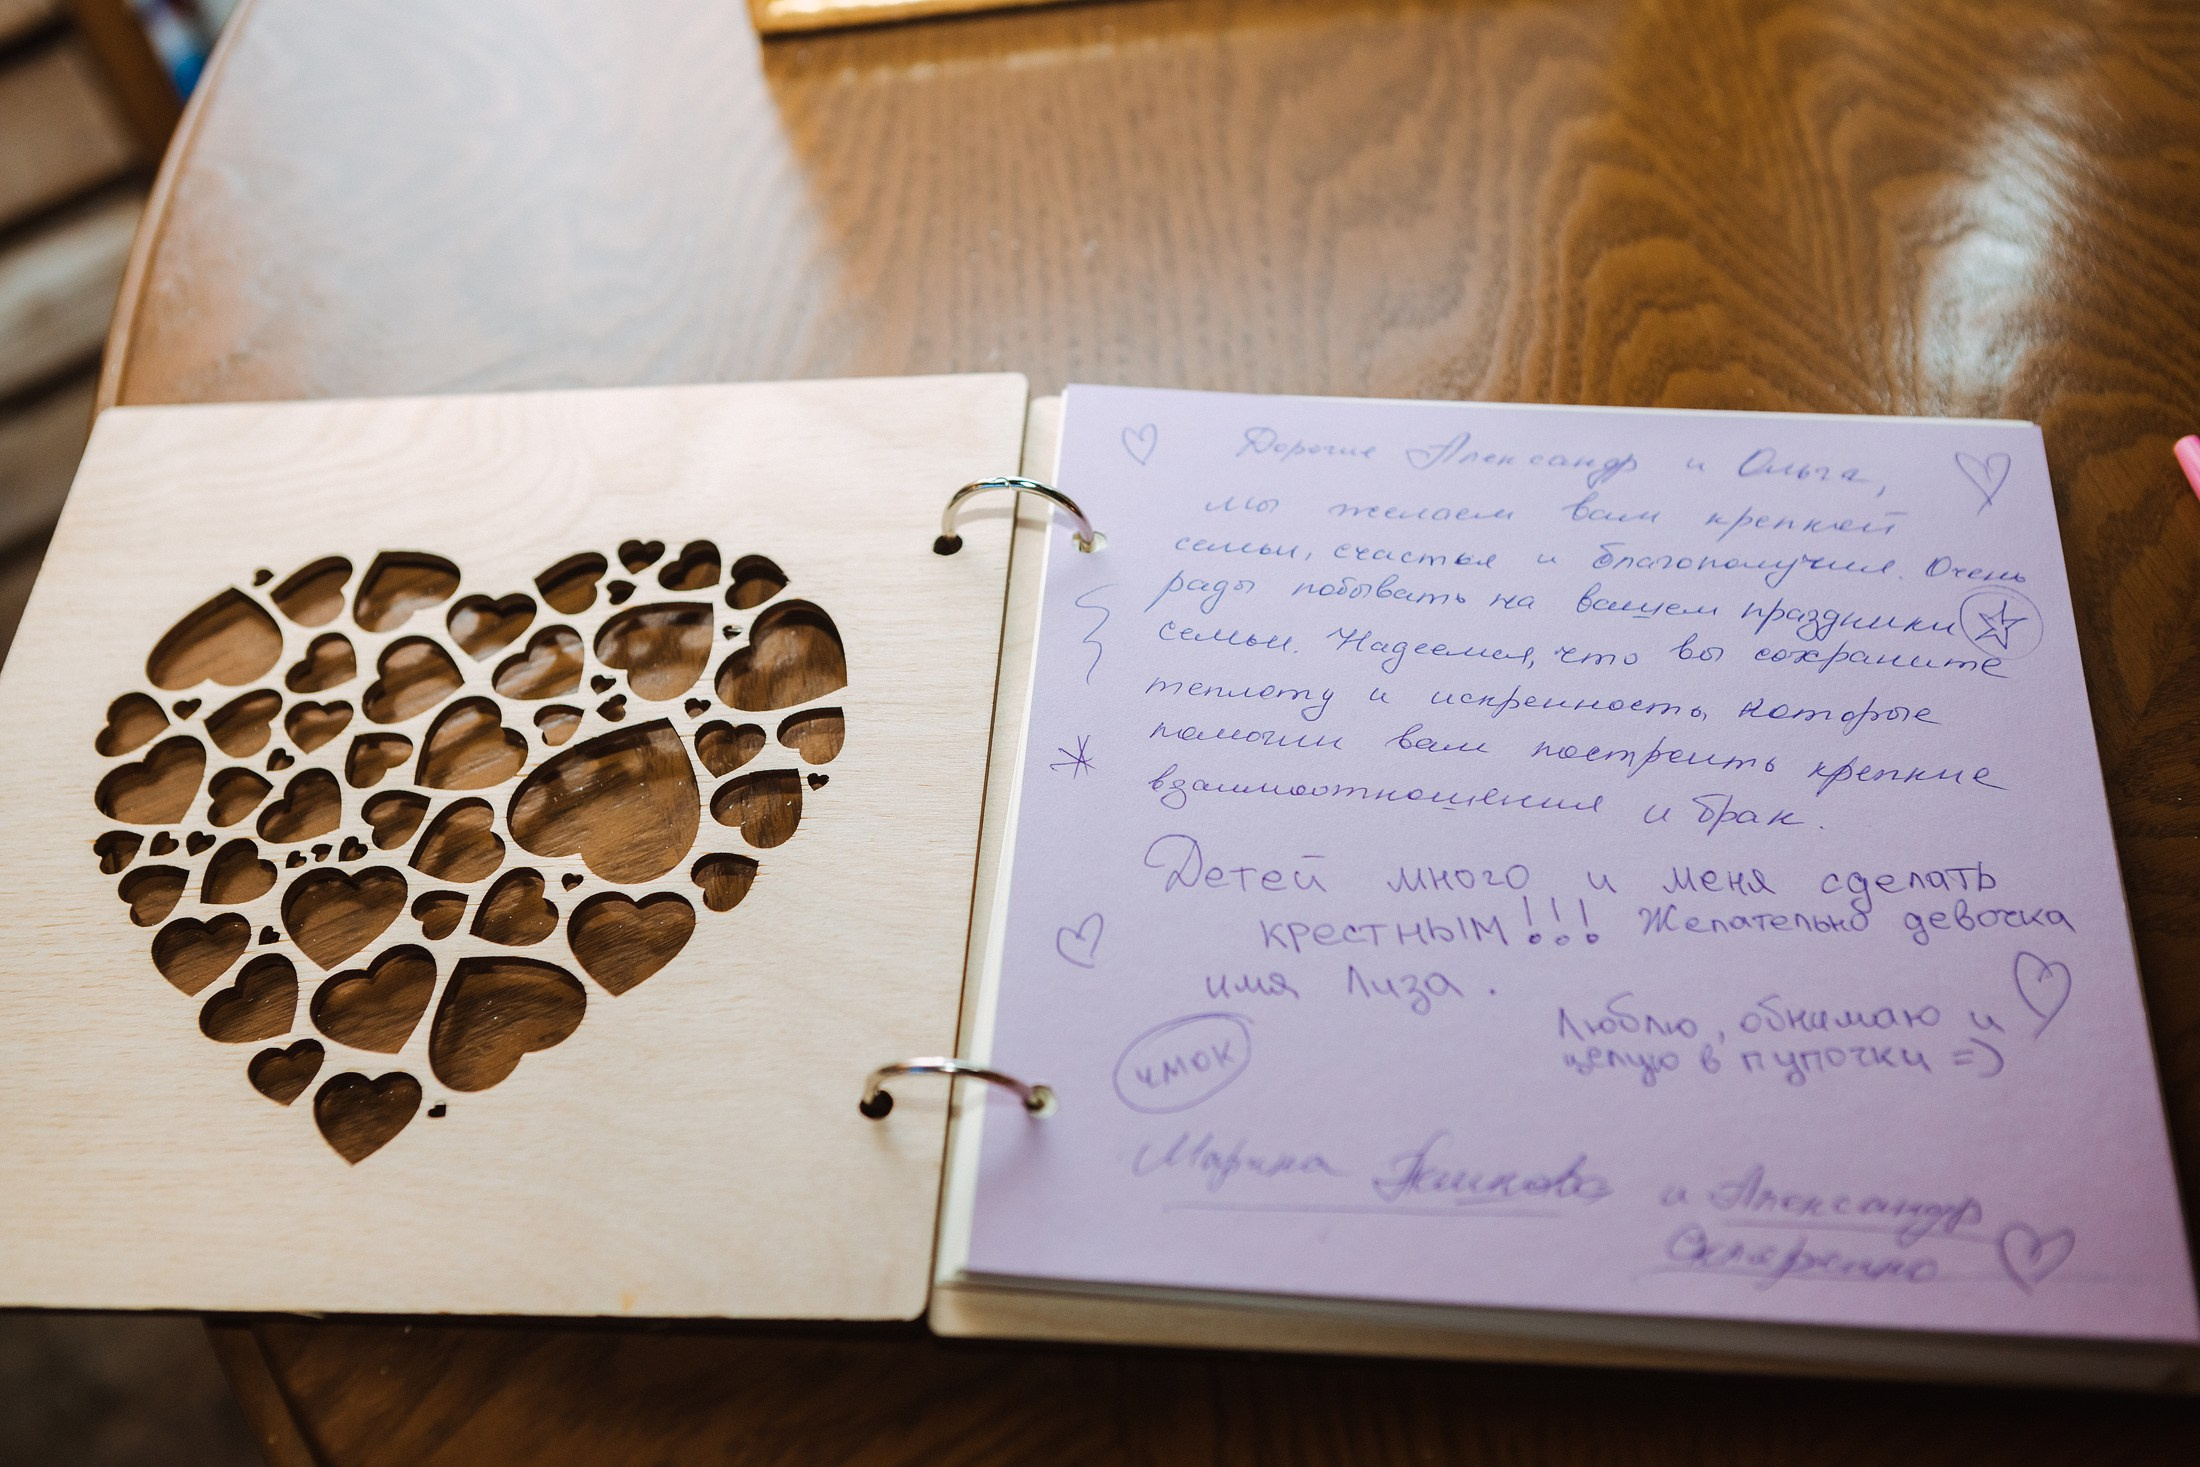 Дорогие Александр и Ольга,
мы желаем вам крепкой
семьи, счастья и благополучия. Очень
рады побывать на вашем праздники
семьи. Надеемся, что вы сохраните
теплоту и искренность, которые
помогли вам построить крепкие
взаимоотношения и брак.
Детей много и меня сделать
крестным!!! Желательно девочка
имя Лиза.
Люблю, обнимаю и
целую в пупочки =)
чмок
Марина и Александр